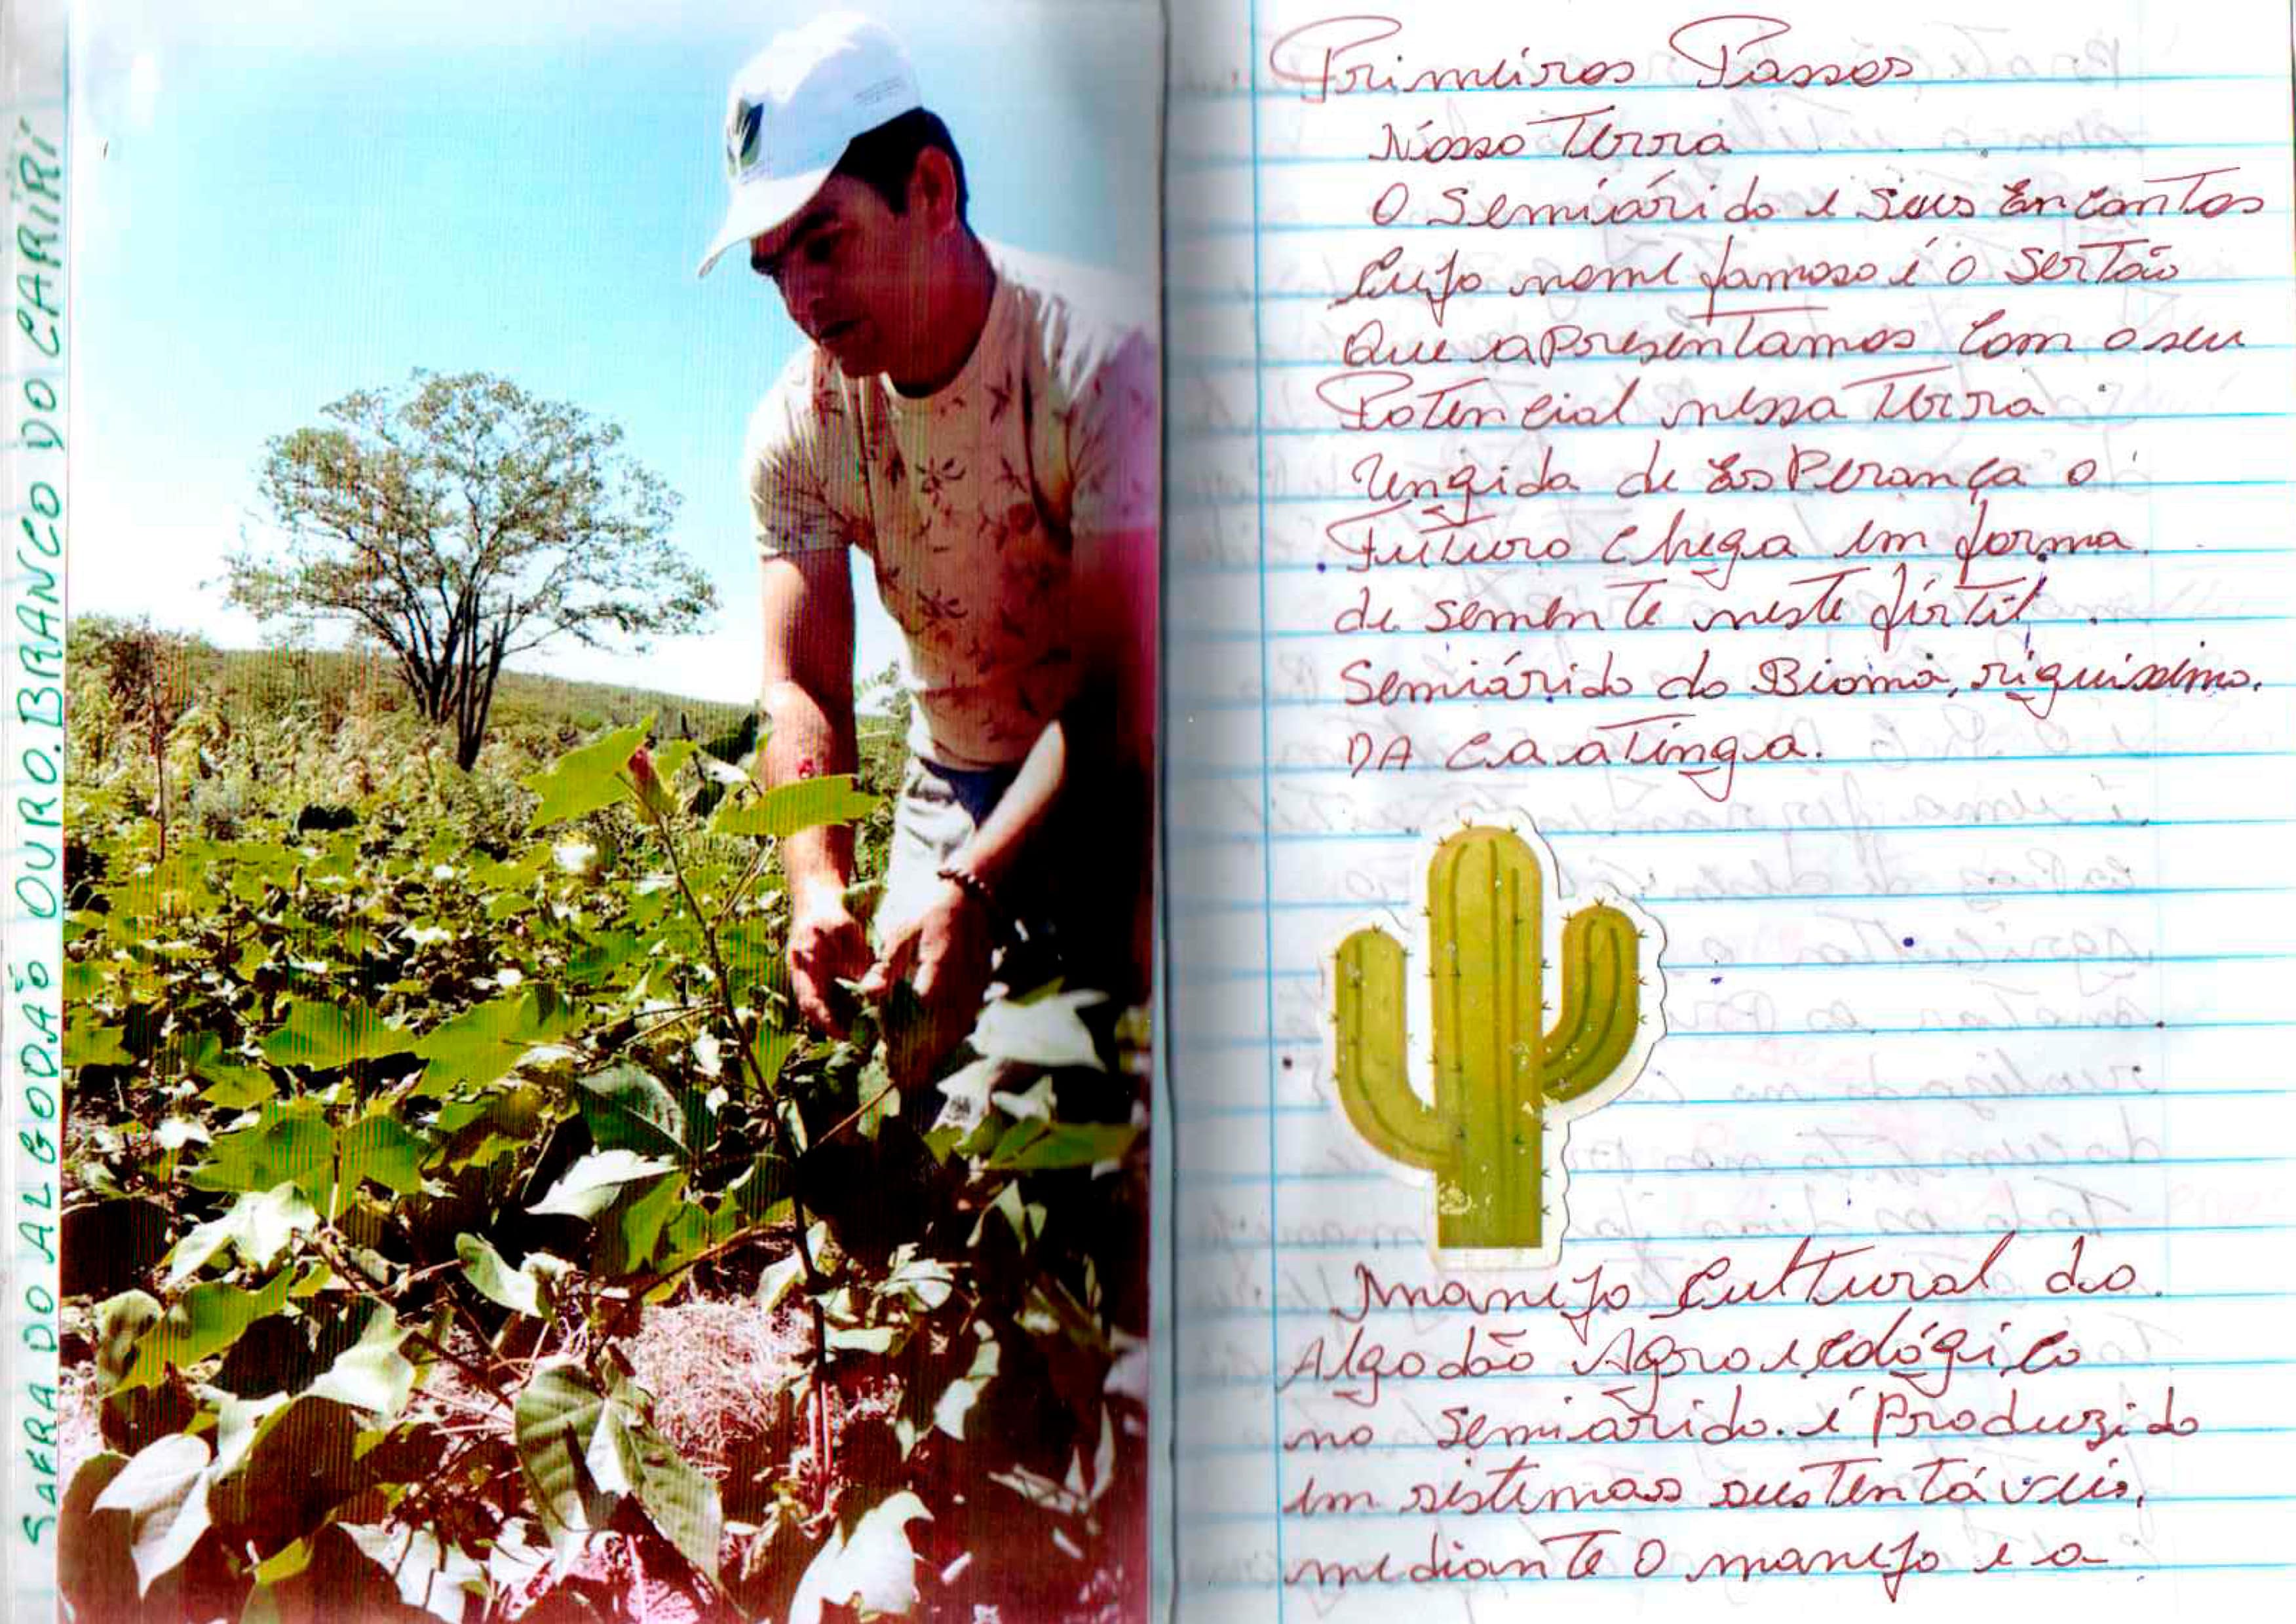 SAFRA DO ALGODÃO OURO.BRANCO DO CARIRI
Primeiros Passos
Nosso Terra
O Semiárido e Seus Encantos
Cujo nome famoso é o Sertão
Que apresentamos Com o seu
Potencial nessa Terra
Ungida de Esperança o
Futuro Chega em forma
de semente neste fértil
Semiárido do Bioma, riquíssimo.
DA Caatinga.
Manejo Cultural do
Algodão Agroecológico
no Semiárido. é Produzido
em sistemas sustentáveis,
mediante O manejo e a